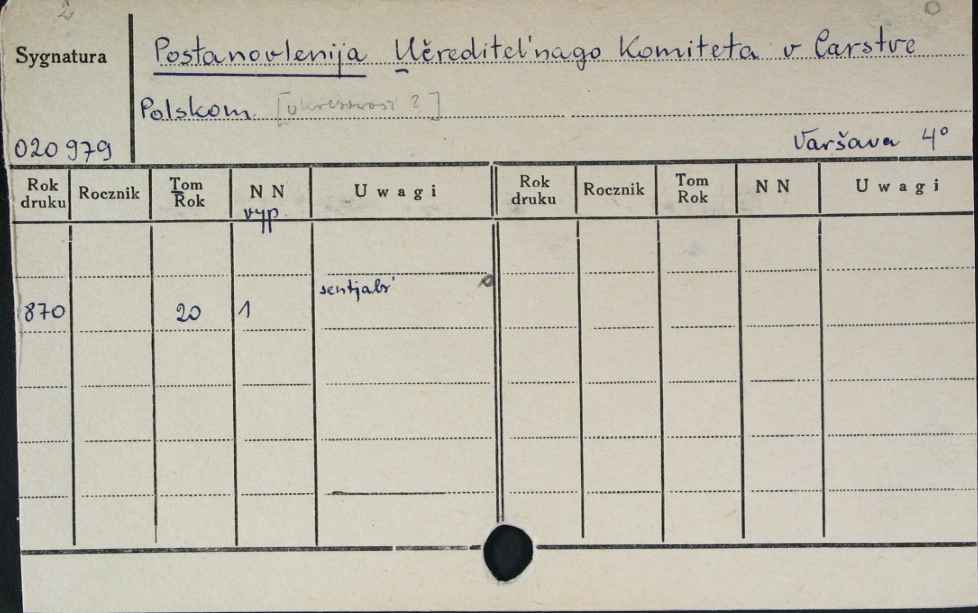 2
Sygnatura
Postanovlenija Učreditel'nago Komiteta v Carstve
Polskom
020979
Varšava 4°
Rok druku Rocznik Tom Rok N N vyp. Uwagi Rok druku Rocznik Tom Rok N N Uwagi
sentjabr'
870 20 1